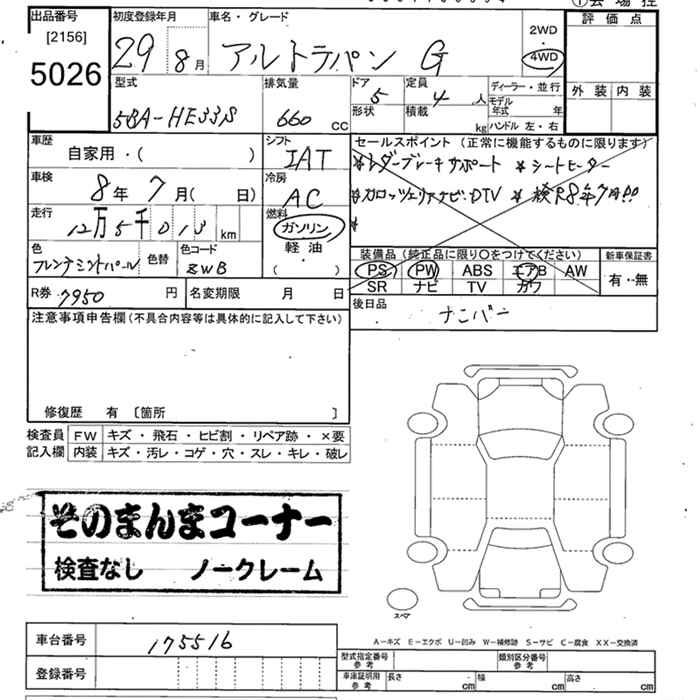 出品番号 初度登録年月 車名・グレード
[2156]
5026
29 8月 アルトラパン G
2WD
4WD
評価点
外装 内装
型式 排気量
5BA-HE33S 660 CC
ドア 5 定員 4 人
形状 積載 kg
ディーラー・並行
モデル年式 年
ハンドル 左・右
車歴 自家用・( )
シフト IAT
セールスポイント (正常に機能するものに限ります)
*レーダーブレーキサポート * シートヒーター
*カロッツェリアナビ.DTV * 検R8年7月!!
*
車検 8年 7月( 日)
冷房 AC
走行 12万5千013 km
燃料 ガソリン
軽油
( )
色 フレンチミントパール 色替 色コード ZWB
装備品 (純正品に限り○をつけてください) 新車保証書
PS PW ABS エアB AW 有・無
SR ナビ TV カワ
R券 7950 円 名変期限 月 日
後日品 ナンバー
注意事項申告欄(不具合内容等は具体的に記入して下さい)
修復歴 有 〔箇所 〕
検査員 FW キズ・飛石・ヒビ割・リペア跡・×要
記入欄 内装 キズ・汚レ・コゲ・穴・スレ・キレ・破レ
そのまんまコーナー
検査なし ノークレーム
スペア
A-キズ E-エクボ U-凹み W-補修跡 S-サビ C-腐食 XX-交換済
車台番号 175516
登録番号
型式指定番号 参考 類別区分番号 参考
車庫証明用 参考 長さ cm 幅 cm 高さ cm